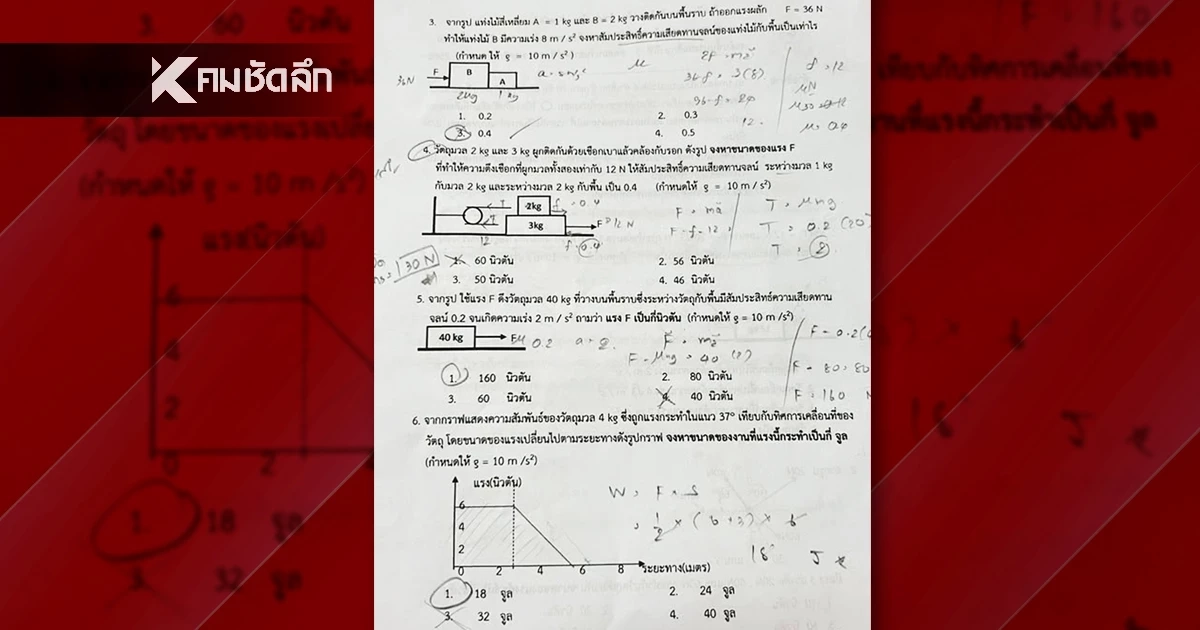 คมชัดลึก
3. จากรูป แท่งไม้สี่เหลี่ยม A = 1 kg และ B = 2 kg วางติดกันบนพื้นราบ ถ้าออกแรงผลัก F = 36 N
ทำให้แท่งไม้ B มีความเร่ง 8 m / s² จงหาสัมประสิทธิ์ความเสียดทานจลน์ของแท่งไม้กับพื้นเป็นเท่าไร
(กำหนด ให้ g = 10 m / s²)
36N F B A
2kg 1 kg
1. 0.2 2. 0.3
3. 0.4 4. 0.5
4. วัตถุมวล 2 kg และ 3 kg ผูกติดกันด้วยเชือกเบาแล้วคล้องกับรอก ดังรูป จงหาขนาดของแรง F
ที่ทำให้ความตึงเชือกที่ผูกมวลทั้งสองเท่ากับ 12 N ให้สัมประสิทธิ์ความเสียดทานจลน์ ระหว่างมวล 1 kg
กับมวล 2 kg และระหว่างมวล 2 kg กับพื้น เป็น 0.4 (กำหนดให้ g = 10 m / s²)
T 2kg f = 0.4
T 3kg F
12 f = 0.4
F = ma T = μmg
T = 0.2 (20)
T = 2
130 N
1. 60 นิวตัน 2. 56 นิวตัน
3. 50 นิวตัน 4. 46 นิวตัน
5. จากรูป ใช้แรง F ดึงวัตถุมวล 40 kg ที่วางบนพื้นราบซึ่งระหว่างวัตถุกับพื้นมีสัมประสิทธ์ความเสียดทาน
จลน์ 0.2 จนเกิดความเร่ง 2 m / s² ถามว่า แรง F เป็นกี่นิวตัน (กำหนดให้ g = 10 m /s²)
40 kg F μ 0.2 a = 2
F = ma
F - μmg = 40 (2)
F = 160 N
1. 160 นิวตัน 2. 80 นิวตัน
3. 60 นิวตัน 4. 40 นิวตัน
6. จากกราฟแสดงความสัมพันธ์ของวัตถุมวล 4 kg ซึ่งถูกแรงกระทำในแนว 37° เทียบกับทิศการเคลื่อนที่ของ
วัตถุ โดยขนาดของแรงเปลี่ยนไปตามระยะทางดังรูปกราฟ จงหาขนาดของงานที่แรงนี้กระทำเป็นกี่ จูล
(กำหนดให้ g = 10 m /s²)
แรง(นิวตัน)
6
4
2
0 2 4 6 8 ระยะทาง(เมตร)
W = F × S
= 1/2 × (6+3) × 6
18 J
1. 18 จูล 2. 24 จูล
3. 32 จูล 4. 40 จูล